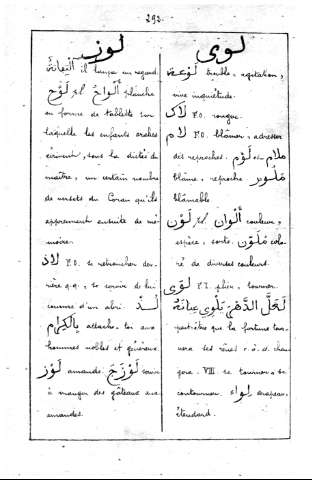 292.
لوز
لوى
il lança un regard
لَوْح pl. أَلْوَاح planche
en forme de tablette sur
laquelle les enfants arabes
écrivent, sous la dictée du
maître, un certain nombre
de versets du Coran qu'ils
apprennent ensuite de mé-
moire.
لَاذَ F.O. se retrancher der-
rière q.q.; se couvrir de lui
comme d'un abri.
بِالْكِرَامِ attache-toi aux
hommes nobles et généreux.
لَوْز amande.
à manger des gâteaux aux
amandes.
لَوْعَة trouble, agitation,
vive inquiétude.
لَاكَ F.O. ronger.
لَامَ F.O. blâmer, adresser
des reproches. لَوْم et مَلَام
blâme, reproche
blâmable
لَوْن pl. أَلْوَان couleur,
espèce, sorte. مُلَوَّن colo-
ré de diverses couleurs.
لَوَى F.I. plier, tourner.
لَعَلَّ الدَّهْرَ يَلْوِي عِنَانَهُ
peut-être que la fortune tour-
nera ses rênes, c.à.d. chan-
gera. VIII se tourner, se
contourner. لِوَاء drapeau,
étendard.